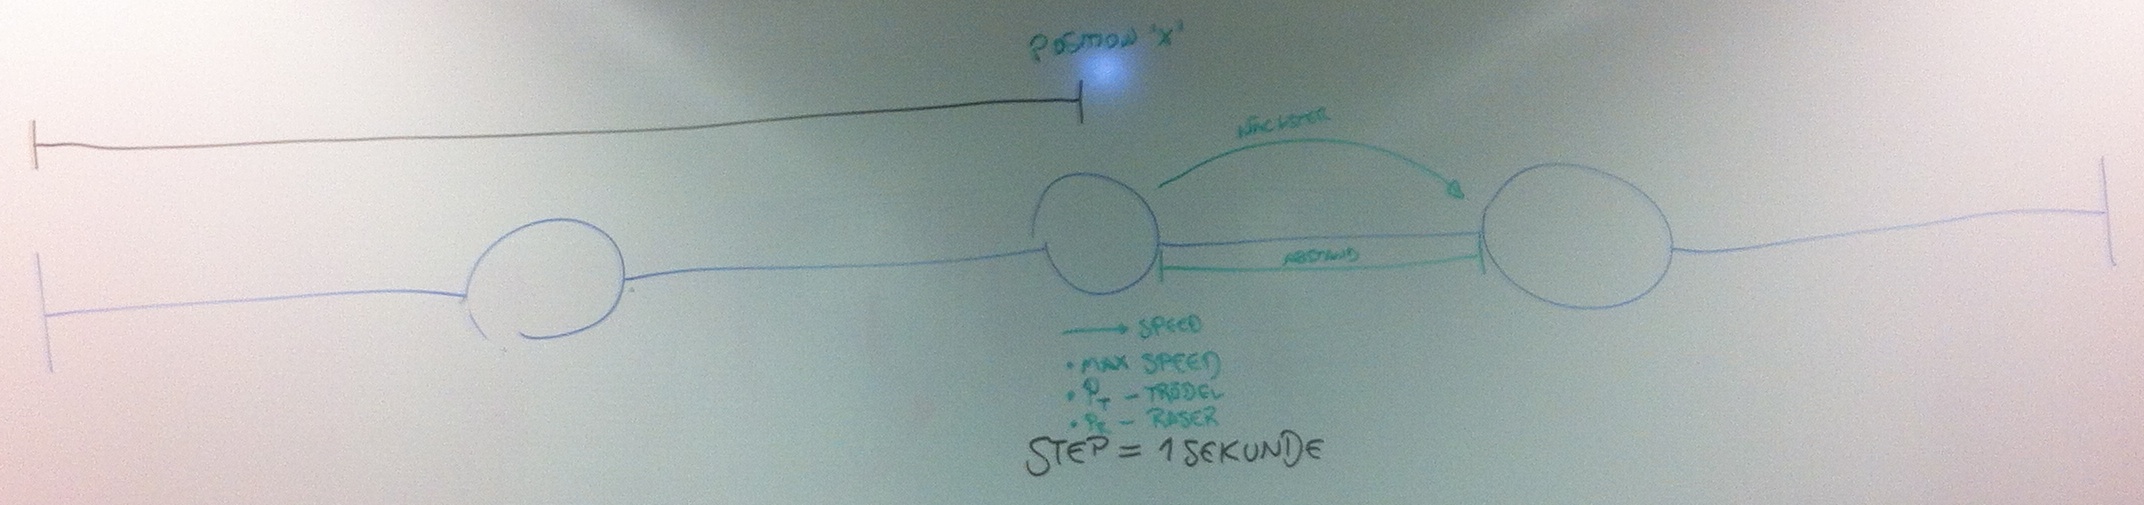 POSITION 'X'
NÄCHSTER
ABSTAND
→ SPEED
• MAX SPEED
• PT - TRÖDEL
• PR - RASER
STEP = 1 SEKUNDE